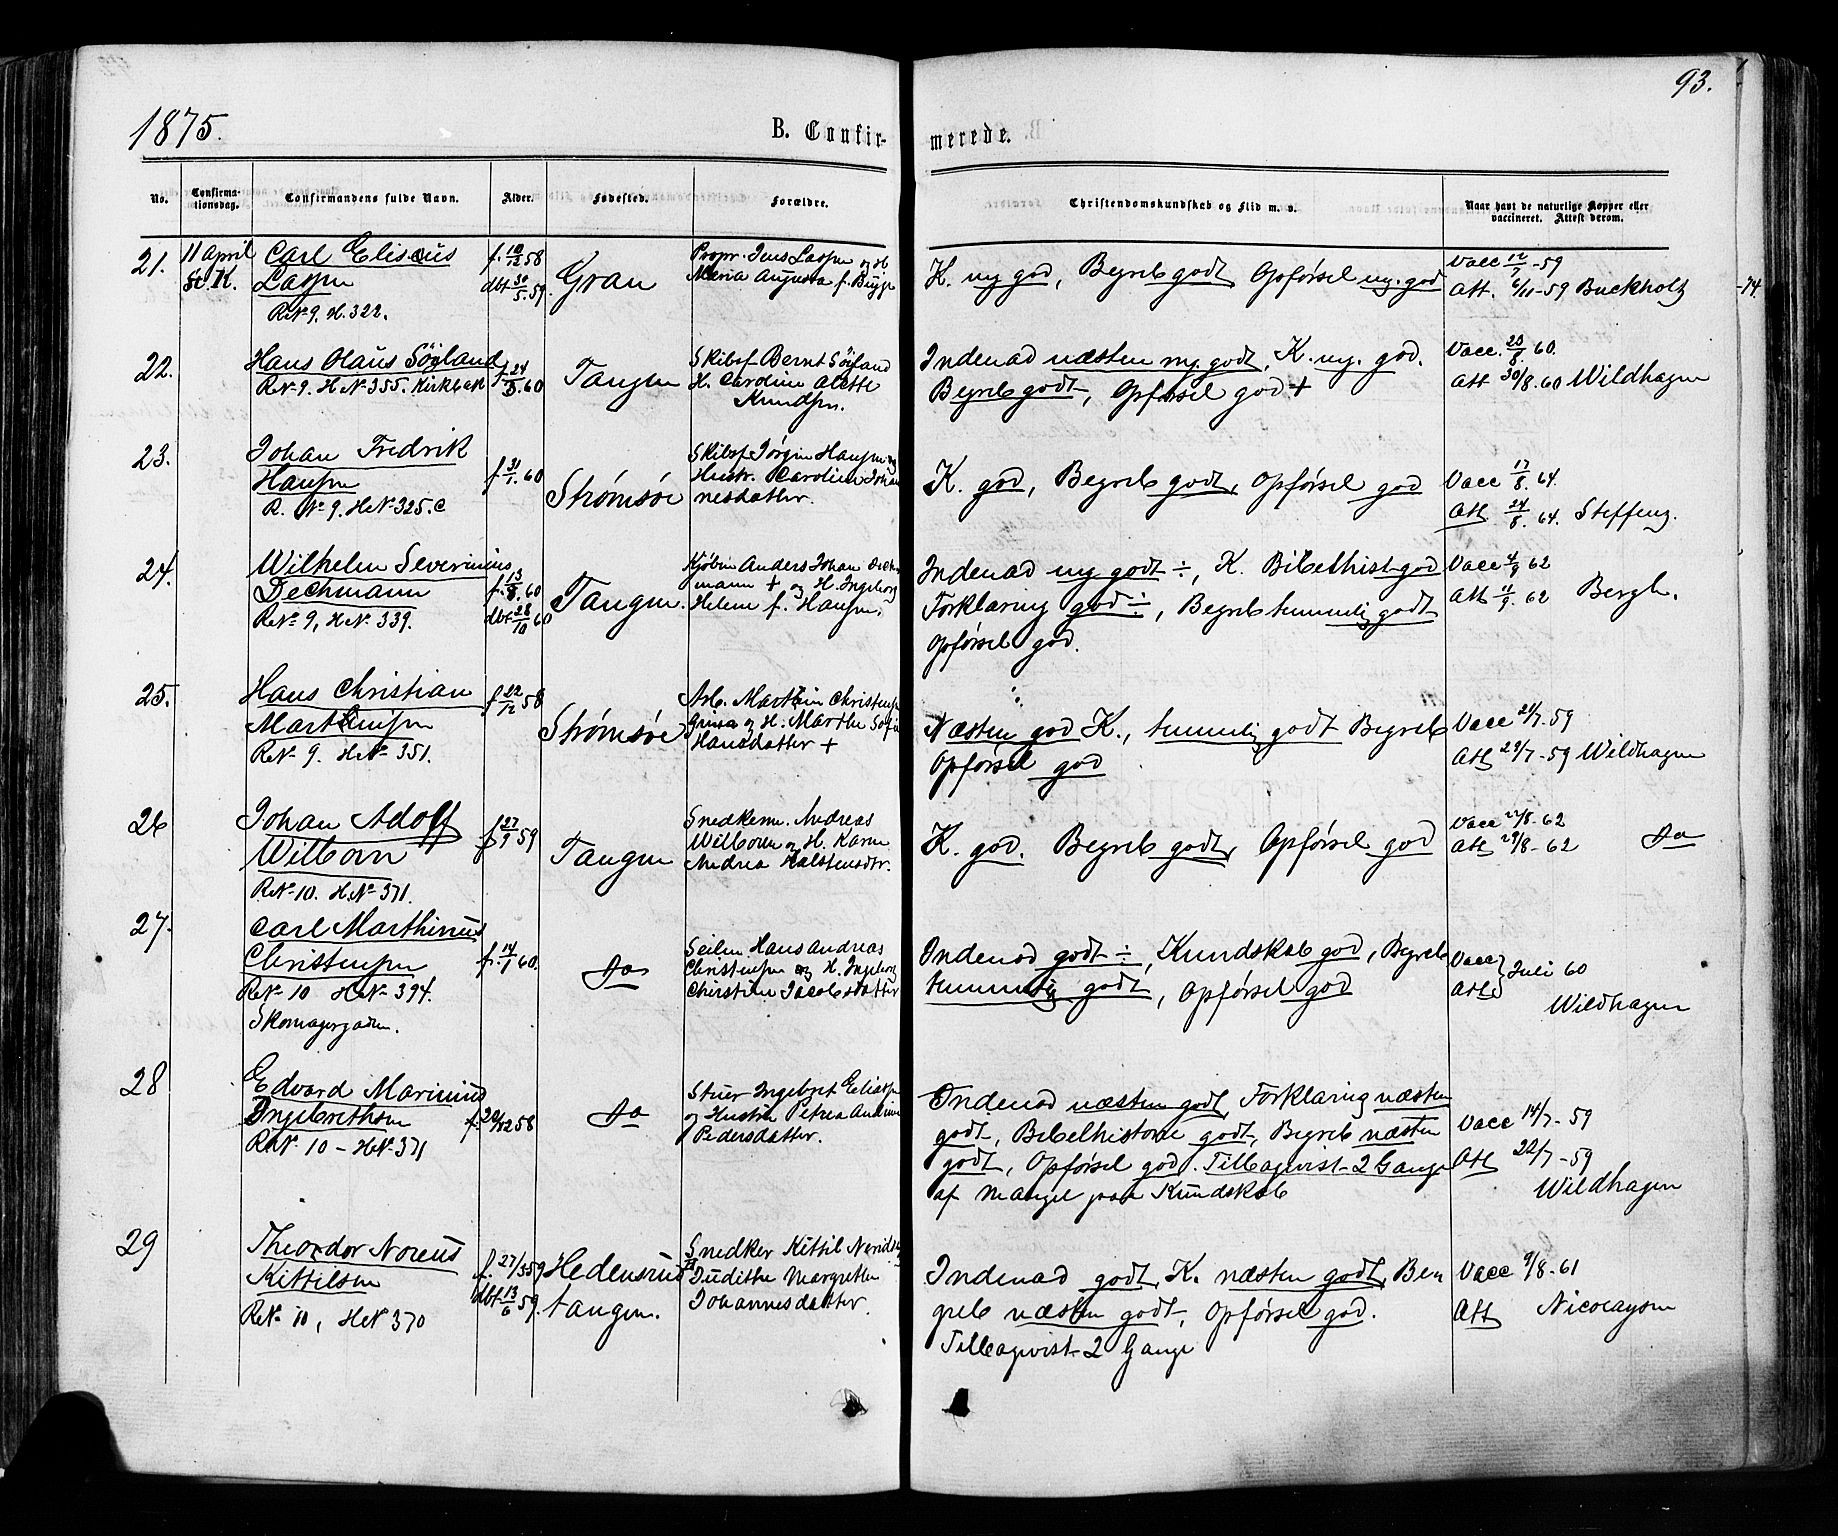 93.
1875.
B. Confir-
merede.
No.
Confirma-
tionsdag.
Confirmandens fulde Navn.
Alder.
Fødested.
Forældre.
Christendomskundskab og Flid m. v.
Naar havt de naturlige Kopper eller
vaccineret. Attest derom.
21.
11 April
St K.
Carl Elisæus
Lassen
R№ 9. H. 322.
f. 10/12 58
dbt 30/5. 59.
Gran
Propr. Jens Lassen og H
Maria Augusta f. Bügge
K. mg god, Begreb godt, Opførsel mg. god
Vacc 12/7 -59
Att. 6/11-59 Buckholz
-74.
22.
Hans Olaüs Söyland
R№ 9. H№ 355. Kirkbak
f. 24/5 60
Tangen
Skibsf Bernt Söyland
H. Caroline Alette
Knudsen.
Indenad næsten mg. godt, K. mg. god.
Begreb godt, Opførsel god +
Vacc. 23/8. 60.
Att 30/8. 60 Wildhagen
23.
Johan Fredrik
Hansen
R. № 9. H№ 325. C
f. 31/1. 60
Strømsöe
Skibsf Jörgen Hansen og
Hustr. Caroline Johan
nesdatter.
K. god, Begreb godt, Opførsel god
Vacc 17/8. 64.
Att 24/8. 64. Steffens.
24.
Wilhelm Severinius
Dechmann
R№ 9, H№ 339.
f. 13/8. 60
dbt 28/10 60
Tangen.
Kjøbm Anders Johan Dech
mann + og H. Ingeborg
Helene f. Hansen.
Indenad mg godt ÷, K. Bibelhist god
Forklaring god ÷, Begreb temmelig godt
Opførsel god.
Vacc 4/9 62
Att 11/9. 62 Bergh.
25.
Hans Christian
Marthinsen
R№ 9. H№ 351.
f 22/12 58
Strømsöe
Arb. Marthin Christensen
og H. Marthe Sofie
Hansdatter +
Næsten god K., temmelig godt Begreb
Opførsel god
Vacc 21/7-59
Att 29/7-59 Wildhagen
26
Johan Adolf
Wilborn
R№ 10. H.№ 371.
f 27/9 59
Tangen
Snedkerm. Andreas
Wilborn og H. Karen
Andrea Halstensdtr.
K. god. Begreb godt, Opførsel god
Vacc 22/8-62
Att 29/8-62 Do
27.
Carl Marthinius
Christensen
R№ 10 H№ 394.
Skomagergaden.
f. 14/1 60.
Do
Seilm. Hans Andreas
Christensen og H. Ingeborg
Christine Jacobsdatter
Indenad godt ÷, Kundskab god, Begreb
temmelig godt, Opførsel god
Vacc
Att
Juli 60
Wildhagen
28
Edvard Marinius
Ingebrethsen
R№ 10 - H№ 371
f. 20/12 58
Do
Stuer Ingebret Eliassen
og Hustru Petrea Andrine
Pedersdatter.
Indenad næsten godt, Forklaring næsten
godt, Bibelhistorie godt, Begreb næsten
godt, Opførsel god. Tilbagevist 2 Gange
af Mangel paa Kundskab
Vacc 14/7-59
Att 22/7-59
Wildhagen
29
Theodor Noreus
Kittilsen
R№ 10, H№ 370
f. 27/3 59
dbt 13/6 59.
Hedensrud
tangen.
Snedker Kittil
Judithe Margrethe
Johannesdatter.
Indenad godt, K. næsten godt, Be
greb næsten godt, Opførsel god.
Tilbagevist 2 Gange
Vacc 9/8-61
Att Nicolaysen